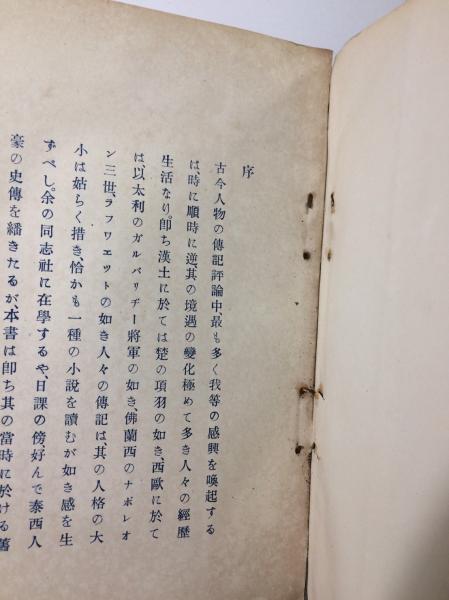 序
古今人物の傳記評論中、最も多く我等の感興を喚起する
は、時に順時に逆、其の境遇の變化極めて多き人々の經歷
生活なり。卽ち漢土に於ては楚の項羽の如き、西歐に於て
は、以太利のガルバリヂー將軍の如き、佛蘭西のナポレオ
ン三世、ラフワエットの如き人々の傳記は、其の人格の大
小は姑らく措き、恰かも一種の小說を讀むが如き感を生
ずべし。余の同志社に在學するや、日課の傍、好んで泰西人
豪の史傳を繙きたるが、本書は卽ち其の當時に於ける舊